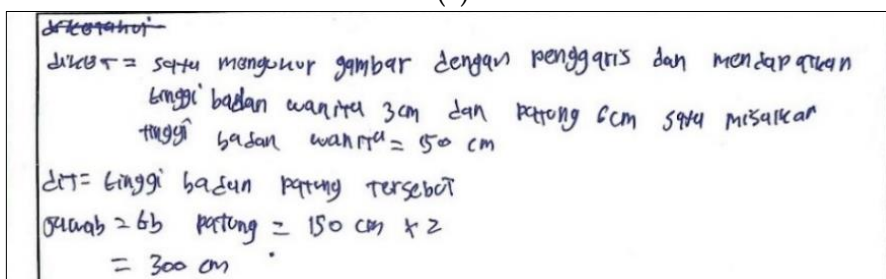 diketahui
diket = saya mengukur gambar dengan penggaris dan mendapatkan
tinggi badan wanita 3cm dan patong 6cm saya misalkan
tinggi badan wanita = 150 cm
dit = tinggi badan patung tersebut
jawab = tb patung = 150 cm x 2
= 300 cm